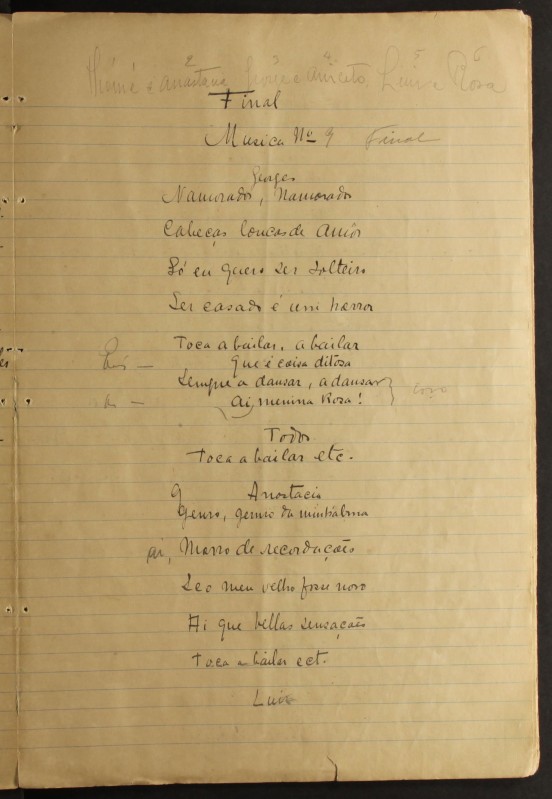 2 3 4 5 6
e Anastacia, George e Aniceto, Luiz e Rosa
Final
Musica Nº 9 Final
Georges
Namorados, Namorados
Cabeças loucas de Amôr
Só eu quero ser solteiro
Ser casado é um horror
Toca a bailar, a bailar
Bis — Que é coisa ditosa
Sempre a dansar, a dansar
Ai, menina Rosa! côro
Todos
Toca a bailar etc.
Anastacia
Genro, genro da minh'alma
ai, Morro de recordações
Se o meu velho fosse novo
Ai que bellas sensações
Toca a bailar ect.
Luiz